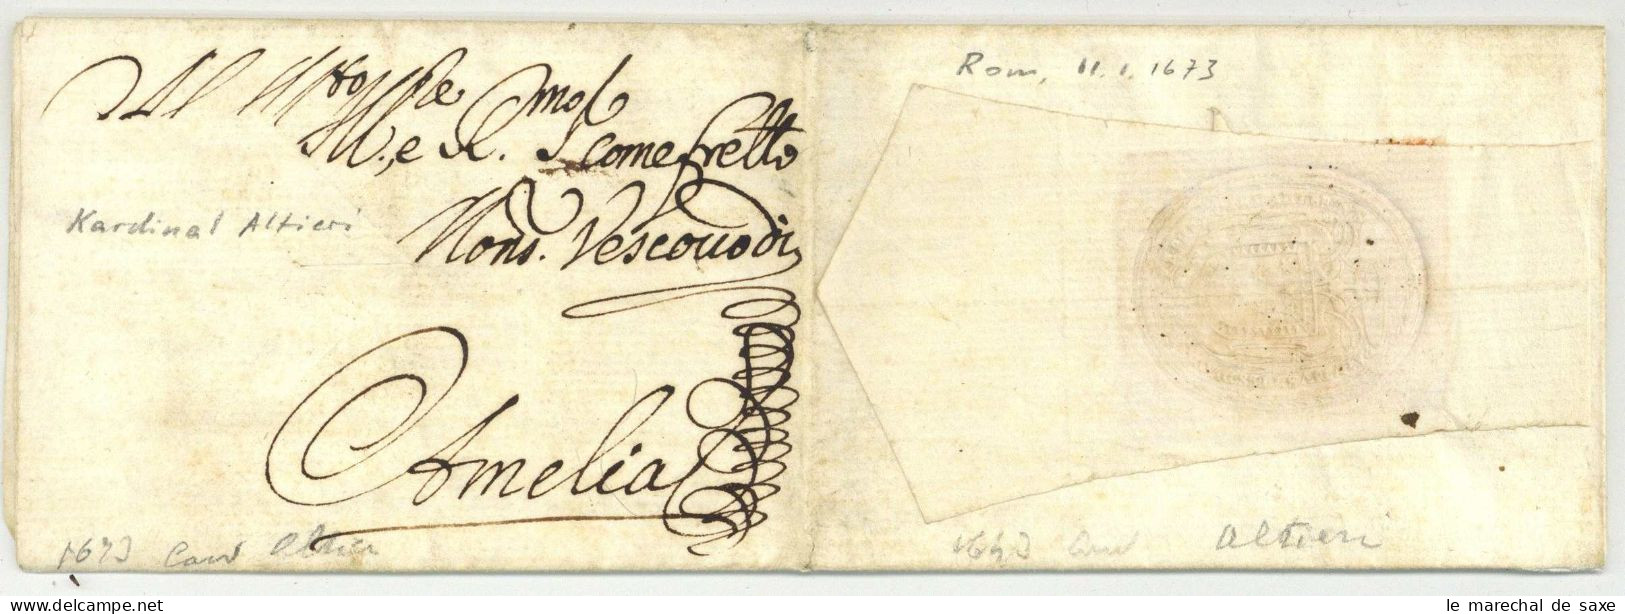 Al Molto Ill.re e R.mo
M. e R. Sig.re come fratello
Mons. Vescovo di
Amelia
Kardinal Altieri
1673 Card Altieri
Rom, 11.1.1673
1673 Card Altieri
le marechal de saxe